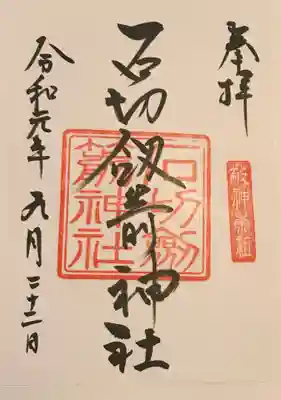 奉拝
石切劔箭神社
石切劔箭神社
令和元年九月二十二日